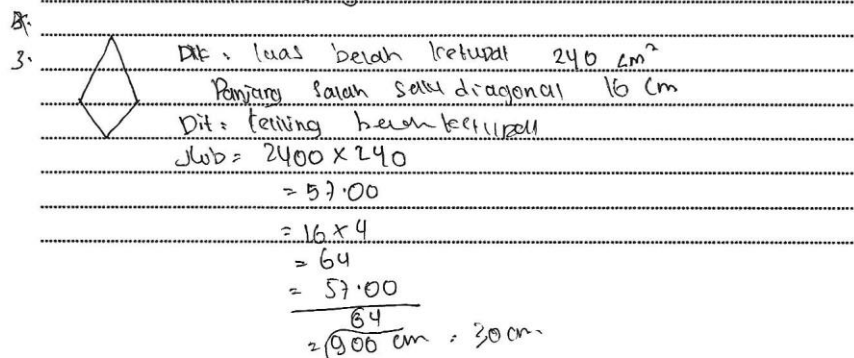 3.
Dit : luas belah ketupat 240 cm²
Panjang salah satu diagonal 16 cm
Dit : keliling belah ketupat
Jwb = 2400 × 240
= 57.00
= 16 × 4
= 64
= 57.00
64
= √900 cm = 30 cm.